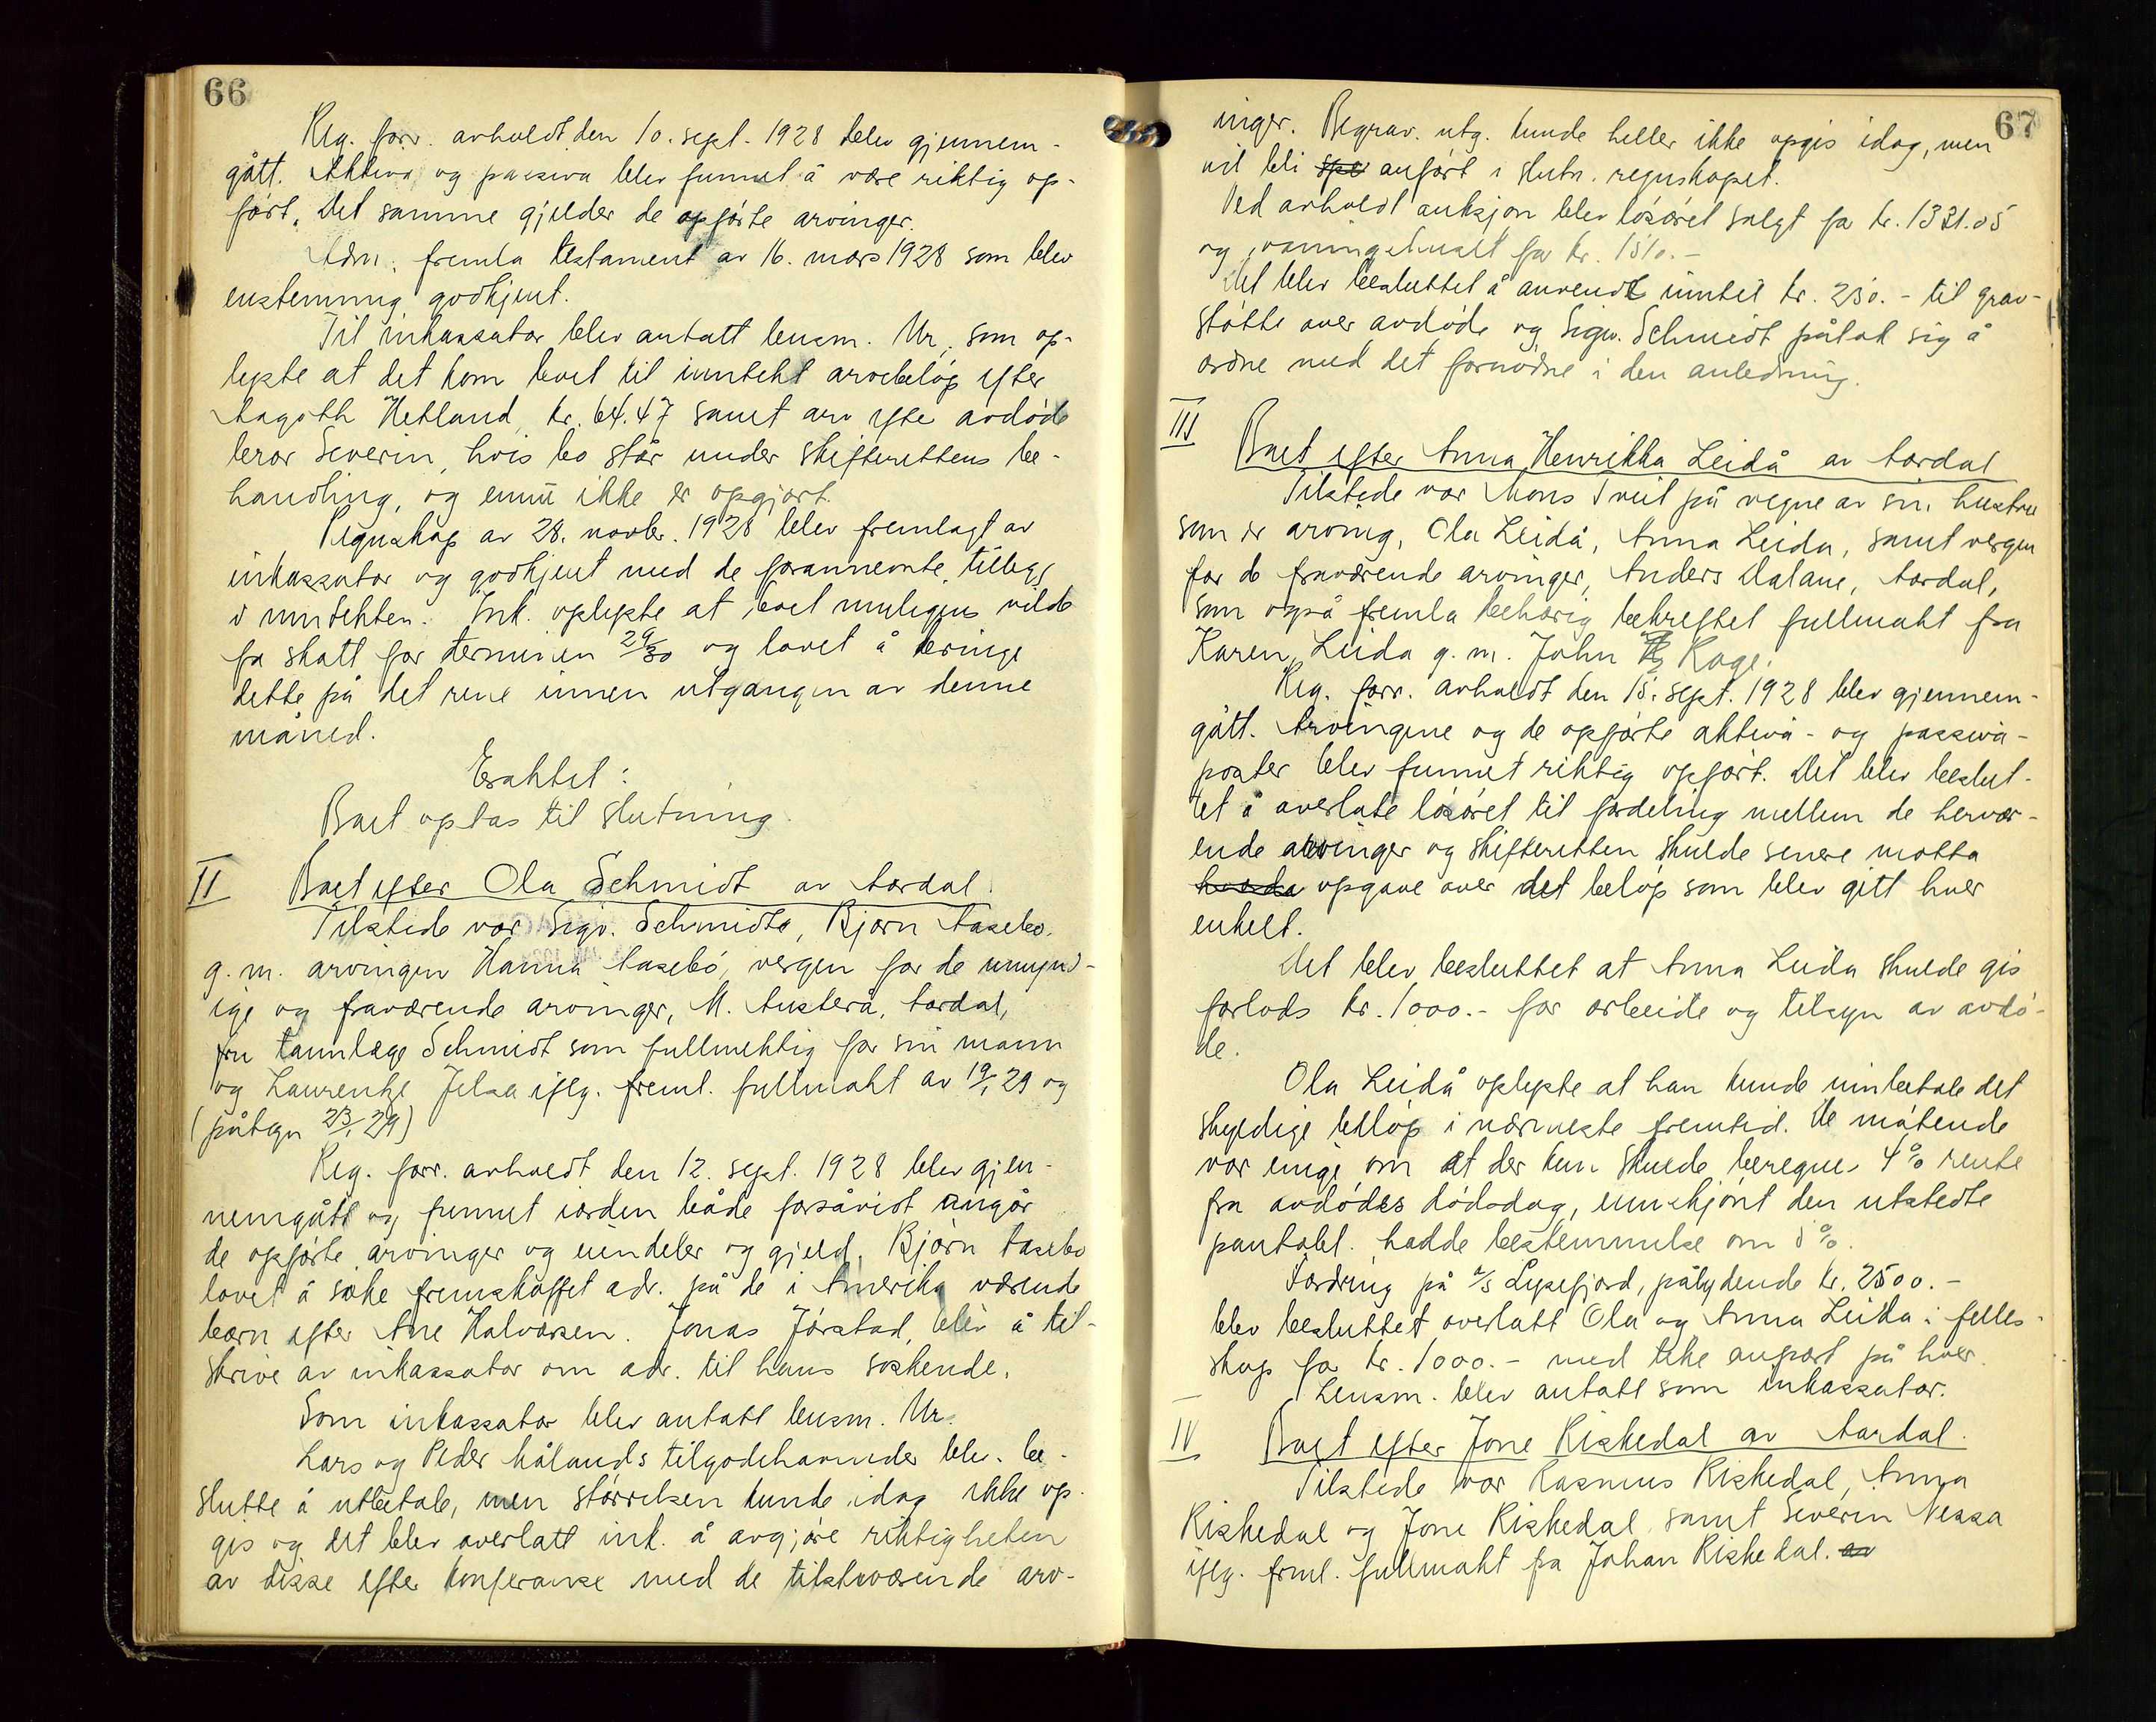 66
Reg. forr. avholdt den 10. sept. 1928 blev gjennem-
gått. Aktiva og passiva blev funnet å være riktig op-
ført. Det samme gjelder de opførte arvinger.
Adm. fremla testament av 16. mars 1928 som blev
enstemmig godkjent.
Til inkassator blev antatt lensm. Ur, som op-
lyste at det kom boet til inntekt arvebeløp efter
Aagoth Hetland, kr. 64.47 samt arv efter avdøde
bror Severin, hvis bo står under skifterettens be-
handling, og ennu ikke er opgjort.
Regnskap av 28. novbr. 1928 blev fremlagt av
inkassator og godkjent med de forannevnte tillegg
i inntekten. Ink. oplyste at boet muligens vilde
få skatt for terminen 29/30 og lovet å bringe
dette på det rene innen utgangen av denne
måned.
Esaktet:
Boet optas til slutning.
II Boet efter Ola Schmidt av Aardal.
Tilstede var Sigv. Schmidt, Bjørn Aasebø
g. m. arvingen Hanna Aasebø, vergen for de umynd-
ige og fraværende arvinger, M. Austerå, Aardal,
fru tannlæge Schmidt som fullmektig for sin mann
og Laurentze Jelsa iflg. freml. fullmakt av 19/1 29 og
(påtegn 23/1 29)
Reg. forr. avholdt den 12. sept. 1928 blev gjen-
nemgått og funnet iorden både forsåvidt angår
de opførte arvinger og eiendeler og gjeld. Bjørn Aasebø
lovet å søke fremskaffet adr. på de i Amerika værende
børn efter Ane Halvorsen. Jonas Jørstad, blev å til-
skrive av inkassator om adr. til hans søskende.
Som inkassator blev antatt lensm. Ur.
Lars og Peder Hålands tilgodehavender blev be-
slutte å utbetale, men størrelsen kunde idag ikke op-
gis og det blev overlatt ink. å avgjøre riktigheten
av disse efter konferanse med de tilstedeværende arv-
67
inger. Begrav. utg. kunde heller ikke opgis idag, men
vil bli anført i slutn. regnskapet.
Ved avholdt auksjon blev løsøret solgt for kr. 1331.05
og våningshuset for kr. 1510.-
Det blev besluttet å anvendt inntil kr. 250.- til grav-
støtte over avdøde og Sigv. Schmidt påtok sig å
ordne med det fornødne i den anledning.
III
Boet efter Anna Henrikka Leidå av Aardal
Tilstede var Mons Tveit på vegne av sin hustru
som er arving, Ola Leidå, Anna Leida, samt vergen
for de fraværende arvinger, Anders Dalane, Aardal,
som også fremla behørig bekreftet fullmakt fra
Karen Leida g. m. John Roge.
Reg. forr. avholdt den 15. sept. 1928 blev gjennem-
gått. Arvingene og de opførte aktiva- og passiva-
poster blev funnet riktig opført. Det blev beslut-
tet å overlate løsøret til fordeling mellem de hervær-
ende arvinger og skifteretten skulde senere motta
opgave over det beløp som blev gitt hver
enkelt.
Det blev besluttet at Anna Leida skulde gis
forlods kr. 1000.- for arbeide og tilsyn av avdø-
de.
Ola Leidå oplyste at han kunde innbetale det
skyldige beløp i nærmeste fremtid. De møtende
var enige om at der kun skulde beregnes 4% rente
fra avdødes dødsdag, ennskjønt den utstedte
pantobl. hadde bestemmelse om 5%.
Fordring på a/s Lysefjord, pålydende kr. 2500.-
blev besluttet overlatt Ola og Anna Leida i felles-
skap for kr. 1000.- med like anpart på hver.
Lensm. blev antatt som inkassator.
IV Boet efter Jone Riskedal av Aardal.
Tilstede var Rasmus Riskedal, Anna
Riskedal og Jone Riskedal, samt Severin Nessa
iflg. freml. fullmakt fra Johan Riskedal.